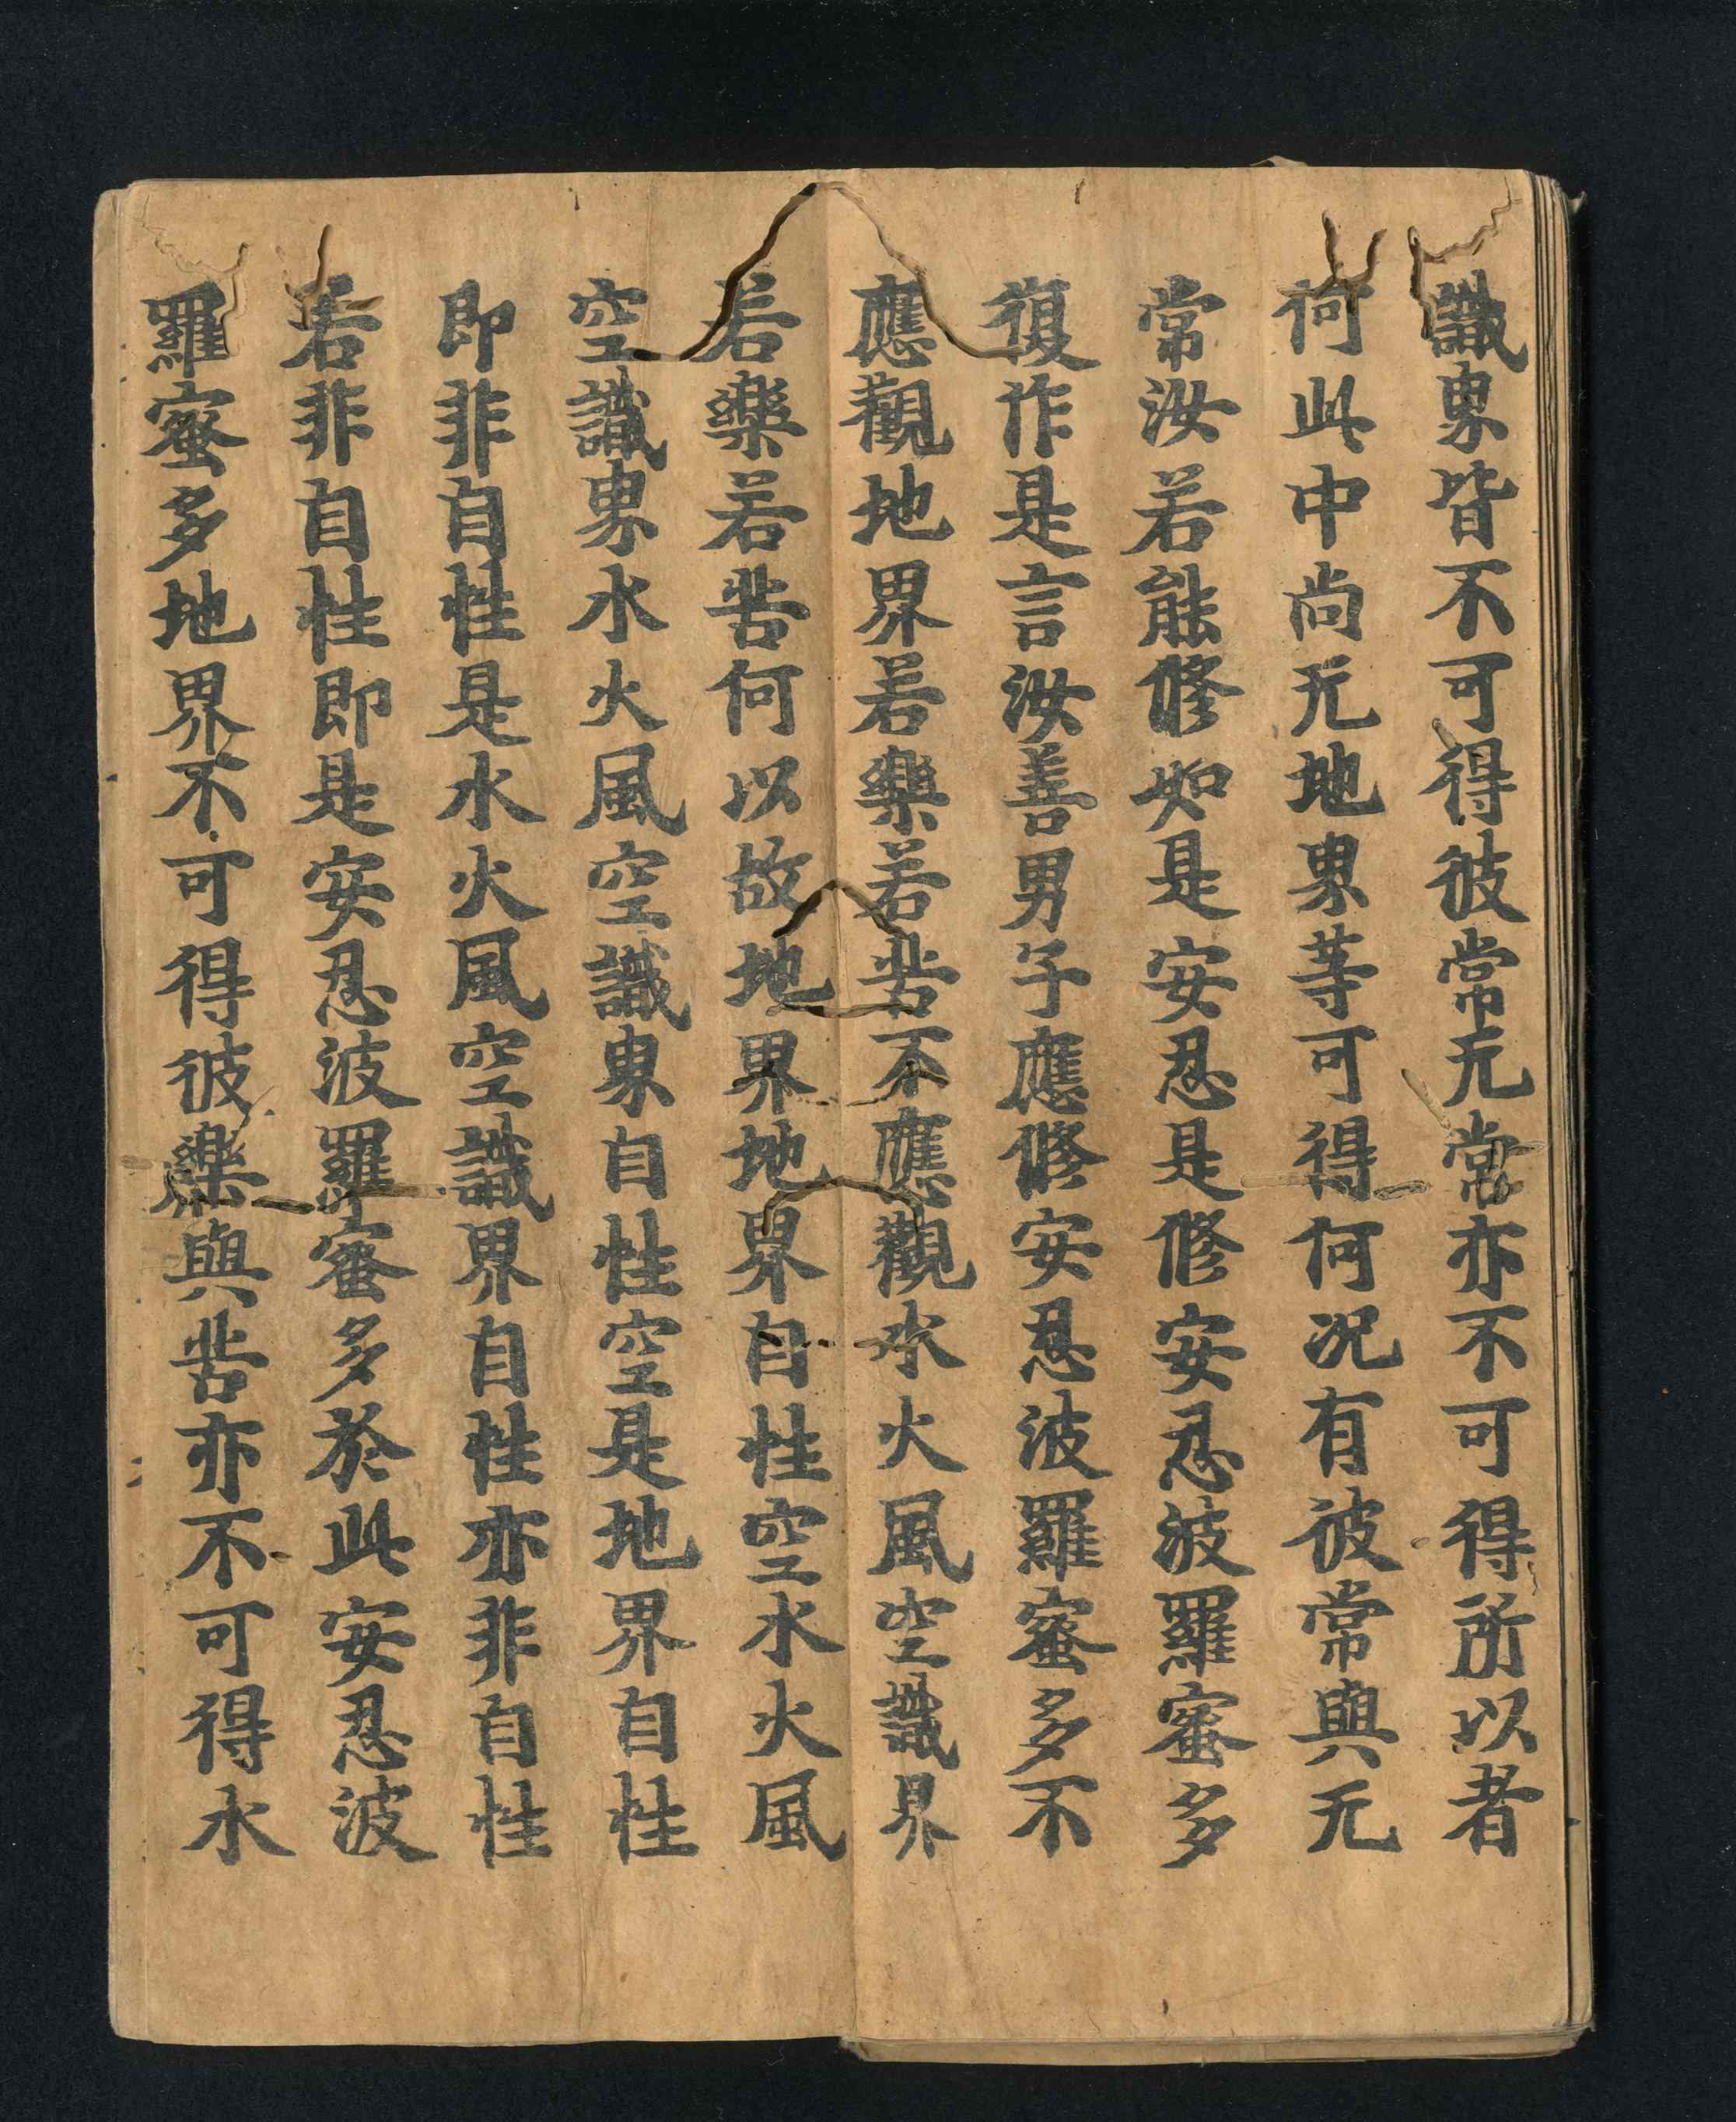 識界皆不可得彼常无常亦不可得所以者
何此中尚无地界等可得何况有彼常與无
常汝若能修如是安忍是修安忍波羅蜜多
復作是言汝善男子應修安忍波羅蜜多不
應觀地界若樂若苦不應觀水火風空識界
若樂若苦何以故地界地界自性空水火風
空識界水火風空識界自性空是地界自性
即非自性是水火風空識界自性亦非自性
若非自性即是安忍波羅蜜多於此安忍波
羅蜜多地界不可得彼樂與苦亦不可得水